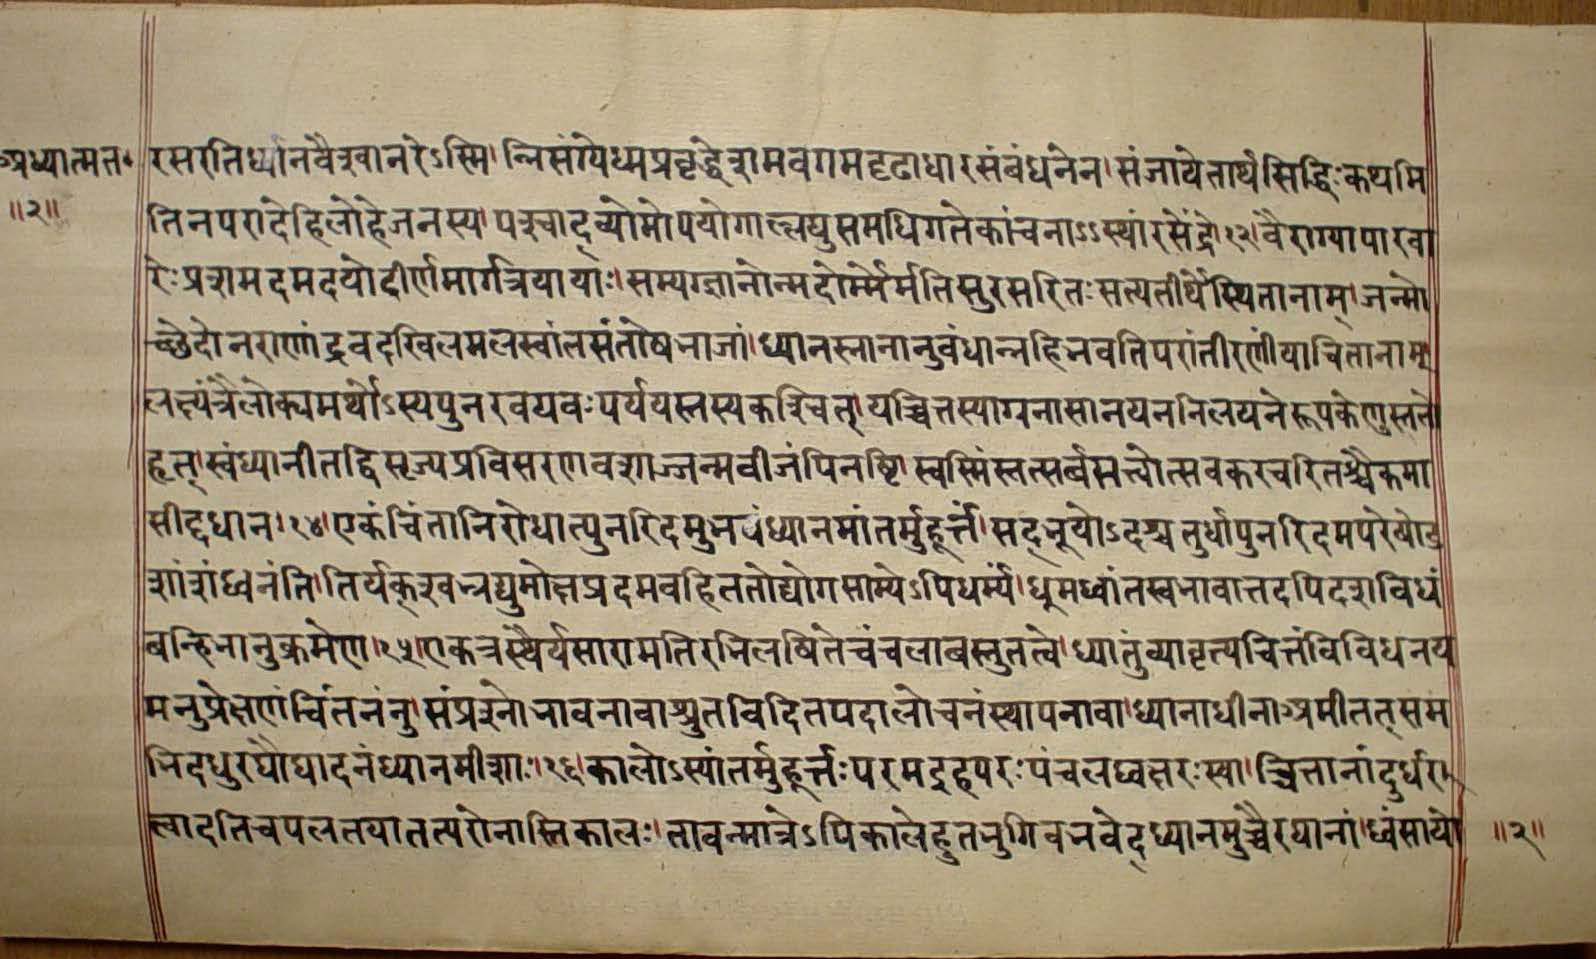 अध्यात्मत॰
॥२॥
रसरतिर्ध्यानवैश्वानरेऽस्मि।न्निसंगयेध्मप्रवृद्धेशमवगमदृढाधारसंबंधनेन।संजायेतार्थसिद्धिःकथमि
तिनपरादेहिलोहेजनस्य।पश्चाद्व्योमोपयोगाल्लघुसमधिगतेकांचनाऽऽस्थांरसेंद्रे।१२।वैराग्यापारवा
रेःप्रशमदमदयोदीर्णमार्गत्रियायाः।सम्यग्ज्ञानोन्मदोर्म्मेर्मतिसुरसरितःसत्यतीर्थेस्थितानाम्।जन्मो
च्छेदोनराणांद्रवदखिलमलस्वांतसंतोषभाजां।ध्यानस्नानानुबंधान्नहिभवतिपरांतीरणीयाचितानाम्
लक्ष्यंत्रैलोक्यमर्थोऽस्यपुनरवयवःपर्ययस्तस्यकश्चित्।यच्चित्तस्याग्रनासानयननिलयनेरूपकेणुस्ततो
हृत्।स्वंध्यानीतद्विसृज्यप्रविसरणवशाज्जन्मवीजंपिनष्टि।स्वस्मिंस्तत्सर्वसत्त्वोत्सवकरचरितश्चैकमा
सीद्दधान।१४।एकंचिंतानिरोधात्पुनरिदमुभयंध्यानमांतर्मुहूर्त्तं।सद्भूयोऽदश्चतुर्धापुनरिदमपरेषोड
शांशंध्वनंति।तिर्यक्श्वभ्रद्युमोक्षप्रदमवहिततोद्योगसाम्येऽपिधर्म्यं।धूमध्वांतस्वभावात्तदपिदशविधं
वन्हिभानुक्रमेण।१५।एकत्रस्थैर्यसारामतिरभिलषितेचंचलाबस्तुतत्वे।ध्यातुंव्यावृत्यचित्तंविविधनय
मनुप्रेक्षणंचिंतनंनु।संप्रश्नोभावनावाश्रुतविदितपदालोचनंस्थापनावा।ध्यानाधीनाअमीतत्सम
भिदधुरघौघादनंध्यानमीशाः।१६।कालोऽस्यांतर्मुहूर्त्तःपरमद्रहपरःपंचलघ्वक्षरःस्या।च्चित्तानांदुर्धर
त्वादतिचपलतयातत्परोनास्तिकालः।तावन्मात्रेऽपिकालेहुतभुगिवभवेद्ध्यानमुच्चैरघानां।ध्वंसायो
॥२॥